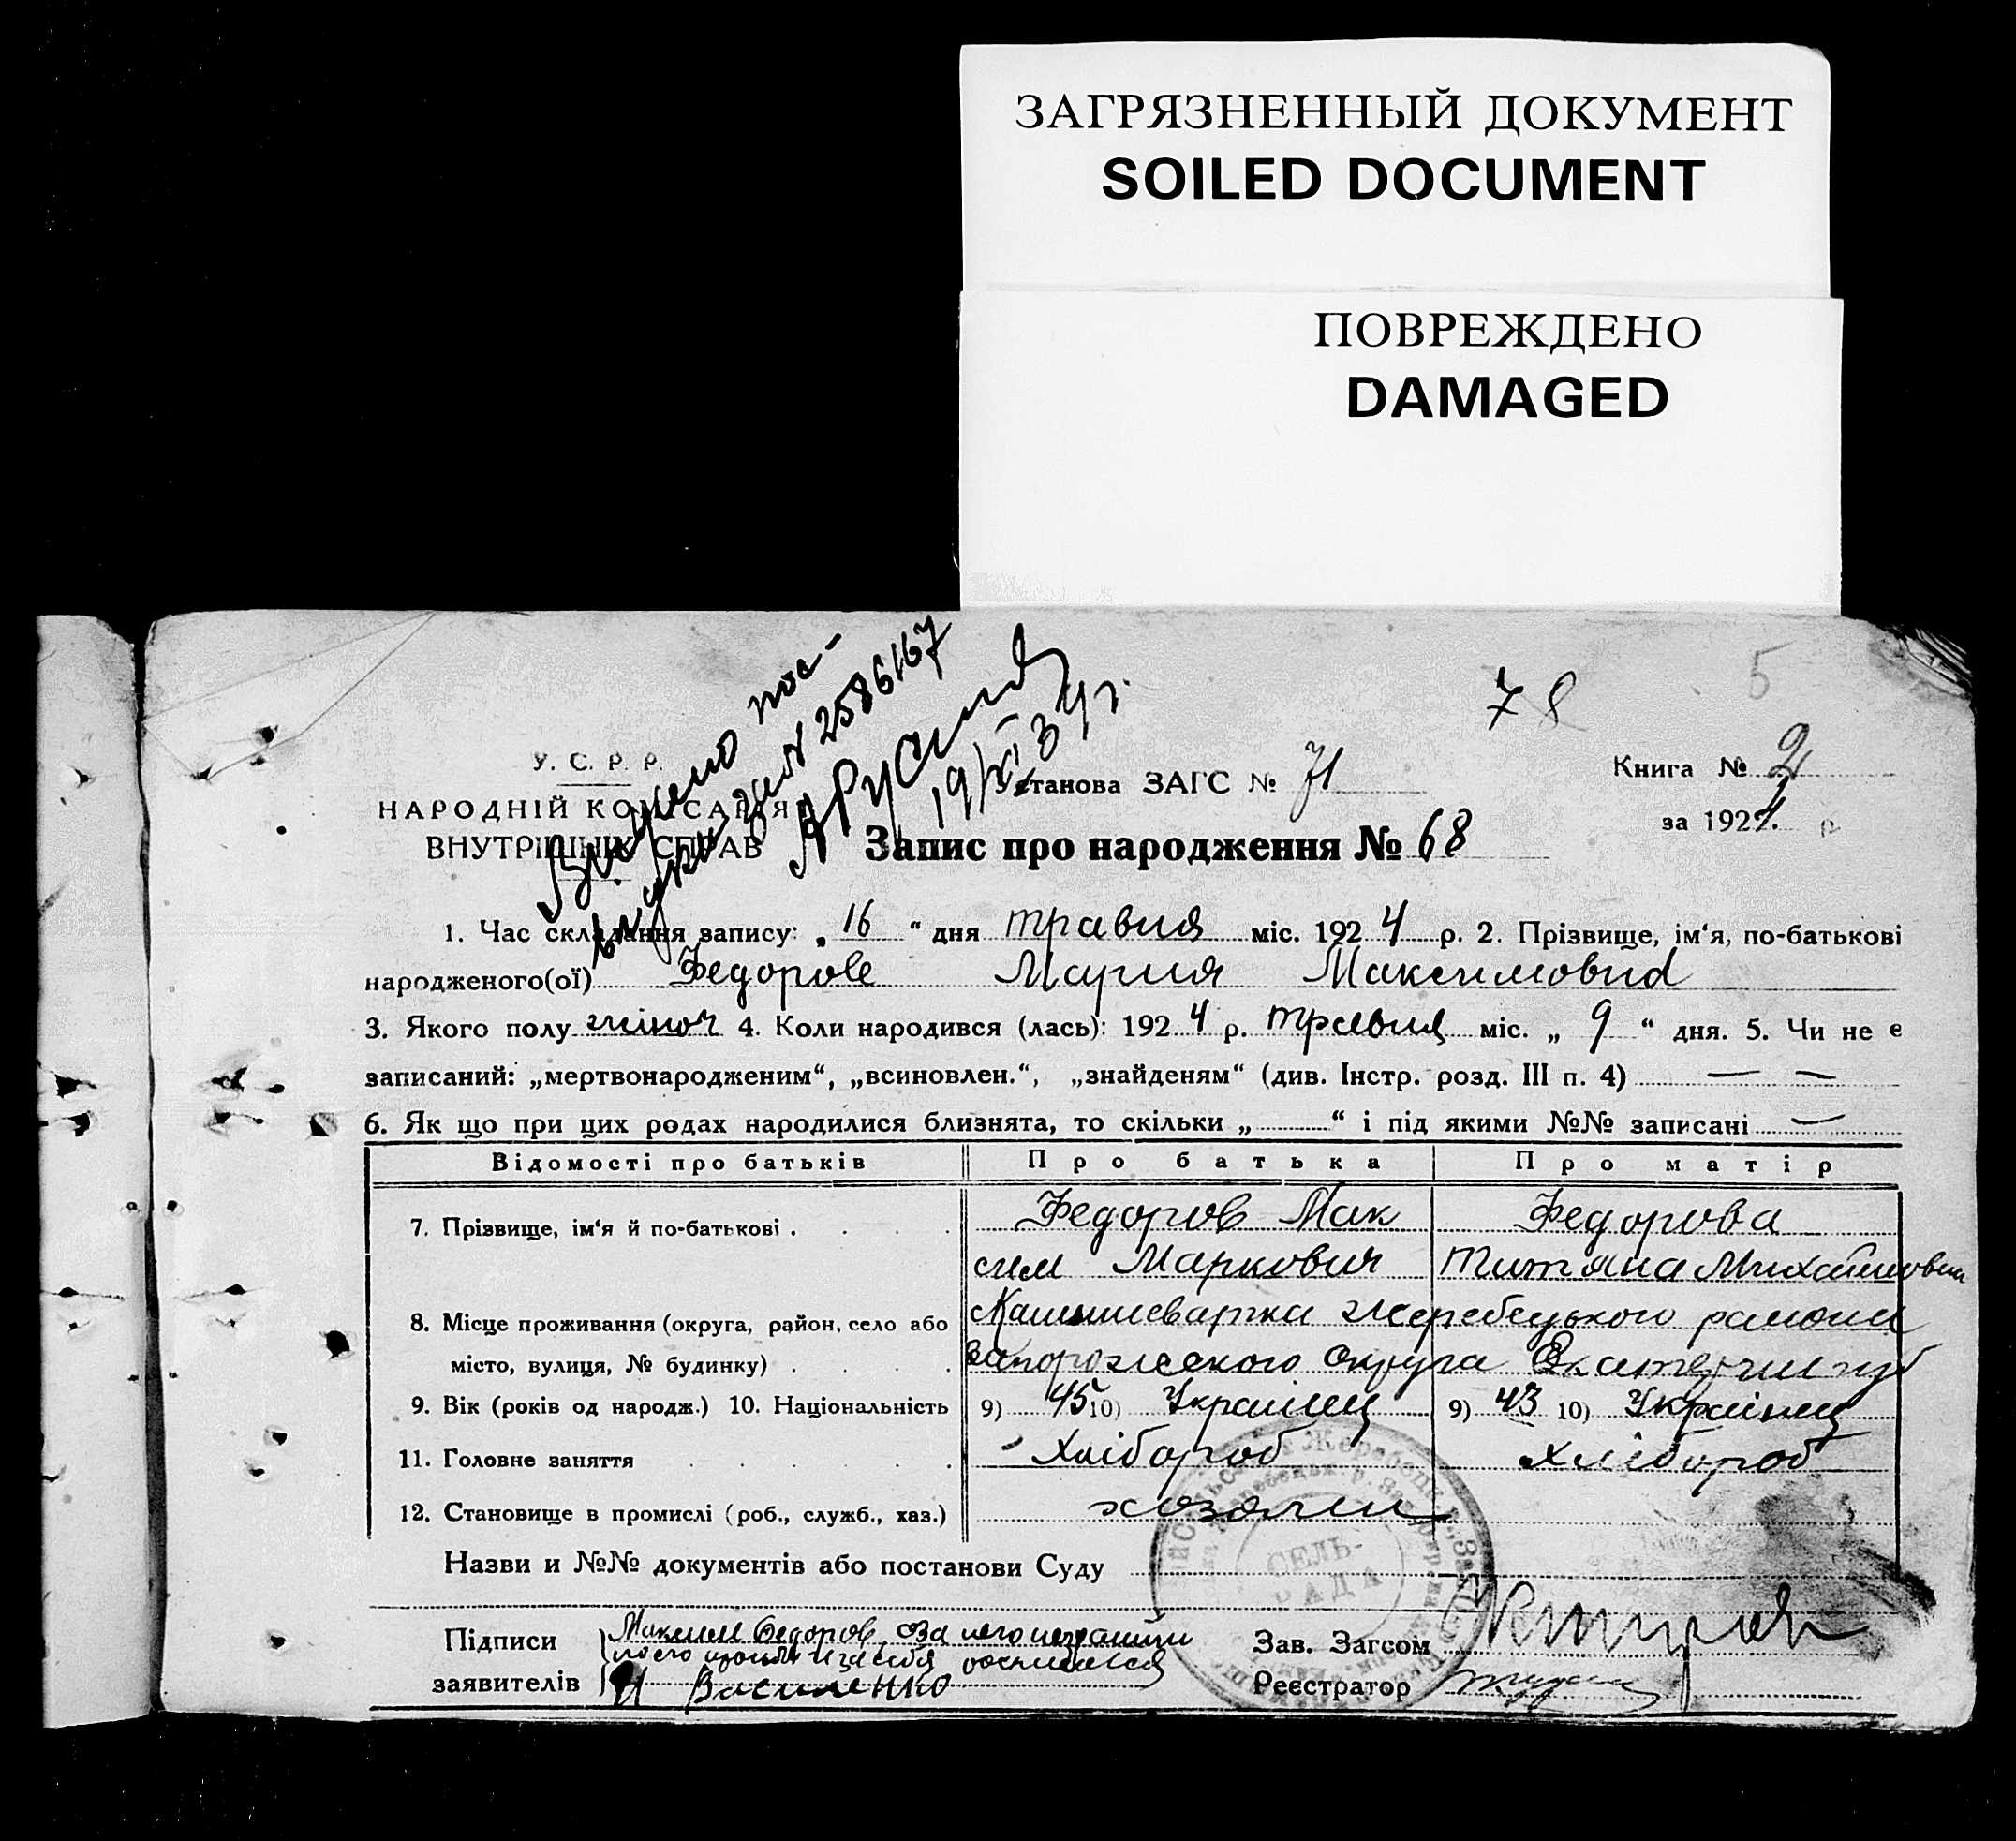 ЗАГРЯЗНЕННЫЙ ДОКУМЕНТ
SOILED DOCUMENT
ПОВРЕЖДЕНО
DAMAGED
78
5
Видано пос-
№ 2586167
19/XI 34 г.
У. С. Р. Р.
НАРОДНІЙ КОМІСАРІЯТ
ВНУТРІШНІХ СПРАВ
Установа ЗАГС № 71
Книга № 2
за 1924 р.
Запис про народження № 68
1. Час складання запису: „ 16 “ дня травня міс. 1924 р. 2. Прізвище, ім‘я, по-батькові
народженого(ої) Федорове Мария Максимовна
3. Якого полу жіноч 4. Коли народився (лась): 1924 р. травня міс. „ 9 “ дня. 5. Чи не є
записаний: „мертвонародженим“, „всиновлен.“, „знайденям“ (див. Інстр. розд. III п. 4) — —
6. Як що при цих родах народилися близнята, то скільки „ “ і під якими №№ записані —
Відомості про батьків Про батька Про матір
7. Прізвище, ім‘я й по-батькові . Федоров Мак Федорова
сим Маркович Титяна Михайловна
8. Місце проживання (округа, район, село або Жеребецького района
місто, вулиця, № будинку) . Запорожского Округа Екатерин губ
9. Вік (років од народж.) 10. Національність 9) 45 10) Украінец 9) 43 10) Украінец
11. Головне заняття Хлібороб Хлібороб
12. Становище в промислі (роб., служб., хаз.) хозяин
СЕЛЬ-
РАДА
Назви и №№ документів або постанови Суду
Підписи Максим Федоров, за него неграмотн
Зав. Загсом
заявителів И Василенко
Реєстратор